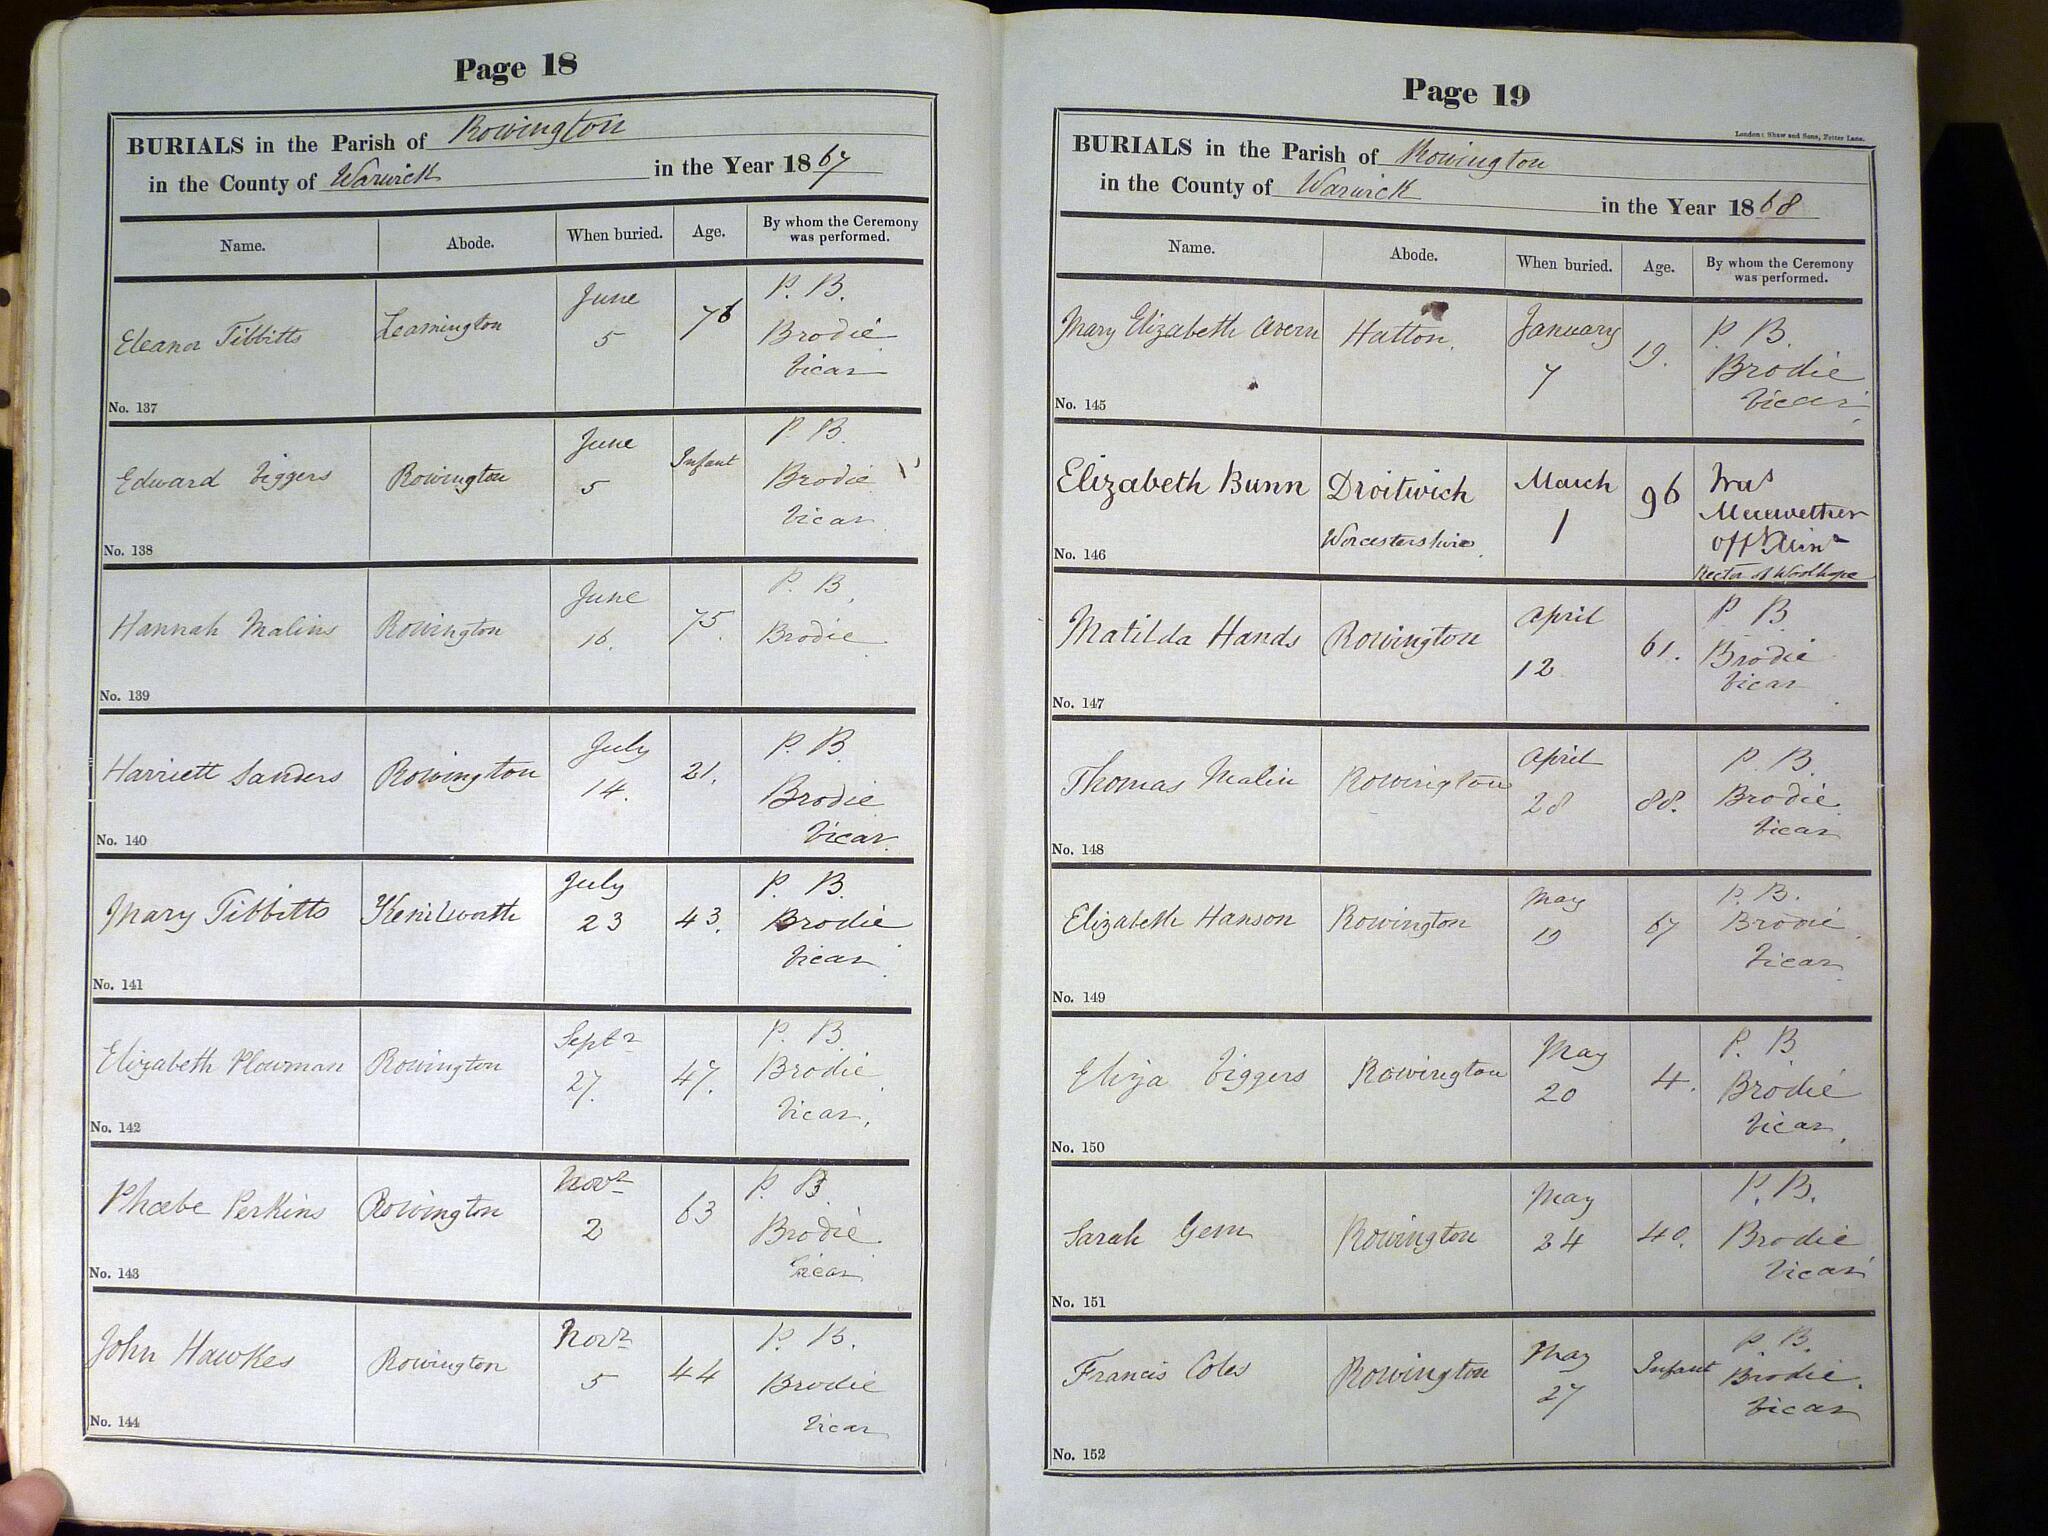 Page 18
BURIALS in the Parish of Rowington
in the County of Warwick in the Year 1867
Name. Abode. When buried. Age. By whom the Ceremony was performed.
Eleanor Tibbitts Leamington June 5 76 P. B. Brodie Vicar
No. 137
Edward Viggers Rowington June 5 Infant P. B. Brodie Vicar
No. 138
Hannah Malins Rowington June 16. 75. P. B. Brodie
No. 139
Harriett Sanders Rowington July 14. 21. P. B. Brodie Vicar.
No. 140
Mary Tibbitts Kenilworth July 23 43. P. B. Brodie Vicar
No. 141
Elizabeth Plowman Rowington Septr 27. 47. P. B. Brodie Vicar.
No. 142
Phœbe Perkins Rowington Novr 2 63 P. B. Brodie Vicar
No. 143
John Hawkes Rowington Novr 5 44 P. B. Brodie Vicar
No. 144
Page 19
London: Shaw and Sons, Fetter Lane.
BURIALS in the Parish of Rowington
in the County of Warwick in the Year 1868
Name. Abode. When buried. Age. By whom the Ceremony was performed.
Mary Elizabeth Avern Hatton. January 7 19. P. B. Brodie Vicar
No. 145
Elizabeth Bunn Droitwich Worcestershire. March 1 96 Merewether Offg Minr Rector of Woolhope
No. 146
Matilda Hands Rowington April 12 61. P. B. Brodie Vicar
No. 147
Thomas Malin Rowington April 28 88. P. B. Brodie Vicar
No. 148
Elizabeth Hanson Rowington May 19 67 P. B. Brodie Vicar
No. 149
Eliza Viggers Rowington May 20 4. P. B. Brodie Vicar.
No. 150
Sarah Gem Rowington May 24 40. P. B. Brodie Vicar
No. 151
Francis Coles Rowington May 27 Infant P. B. Brodie. Vicar
No. 152